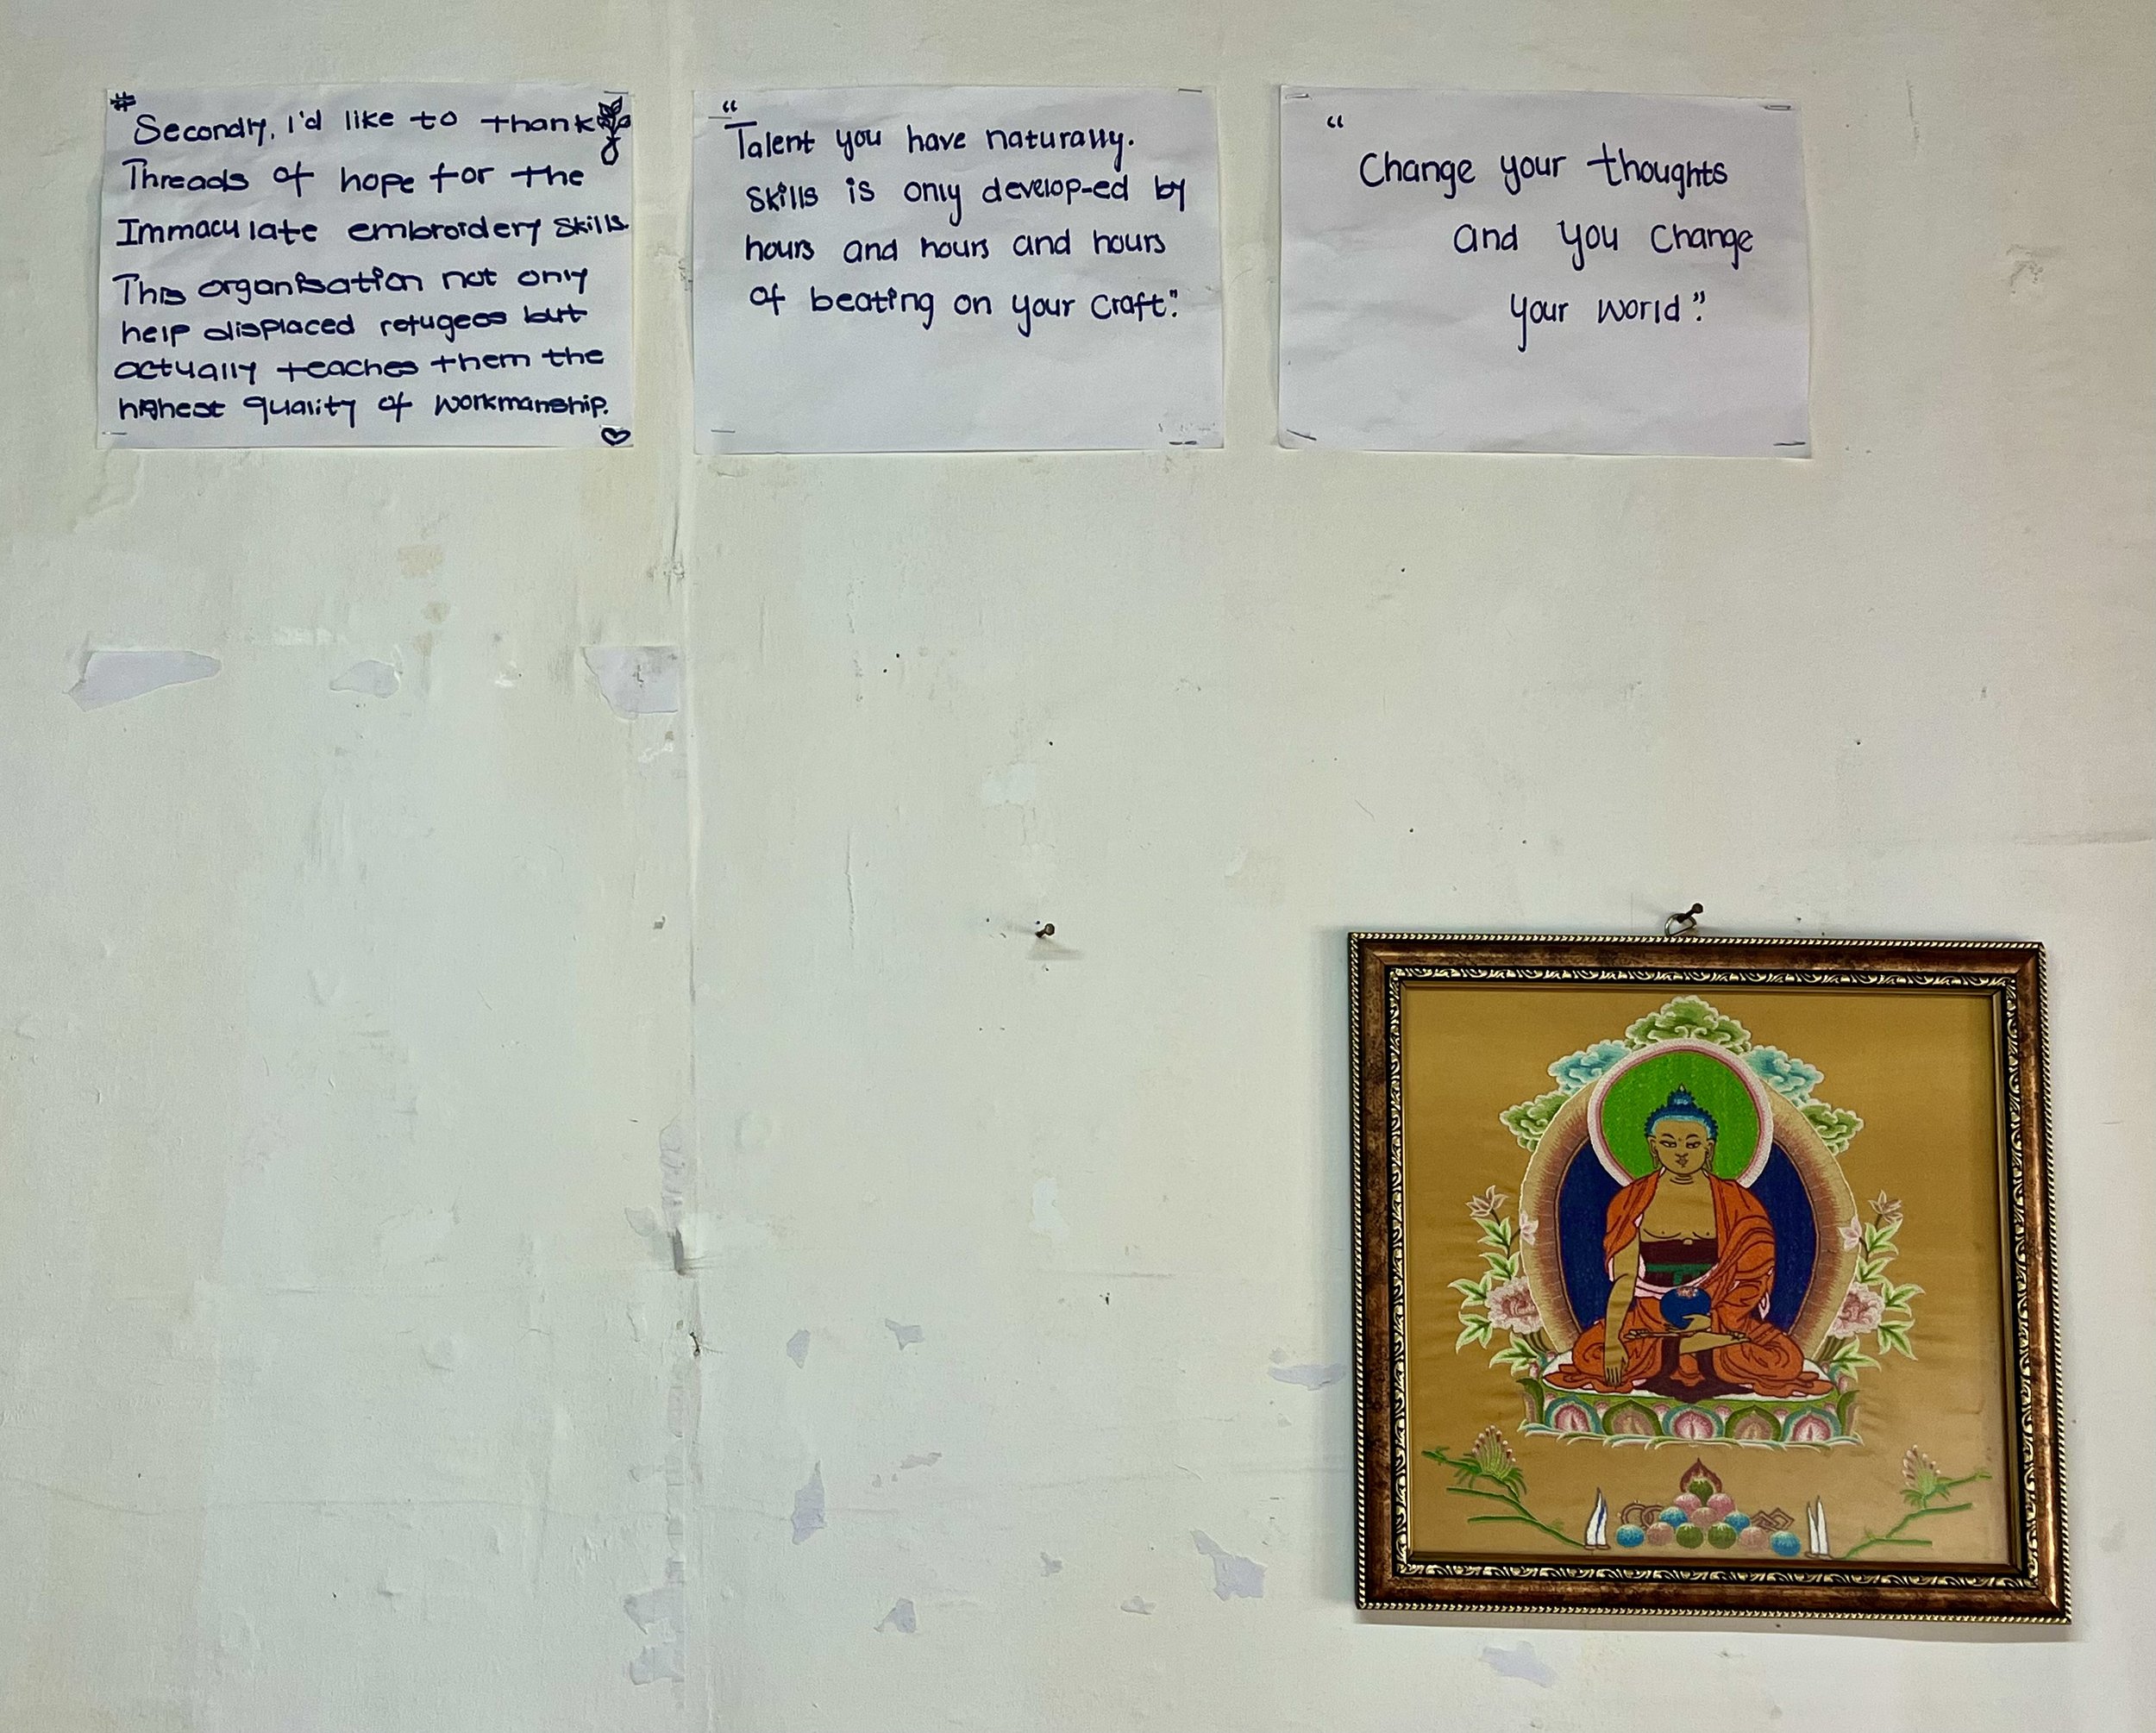 "Secondly, I'd like to thank
Threads of hope for the
Immaculate embroidery skills.
This organisation not only
help displaced refugees but
actually teaches them the
highest quality of workmanship.
"Talent you have naturally.
Skills is only develop-ed by
hours and hours and hours
of beating on your craft."
"Change your thoughts
and you change
your world."